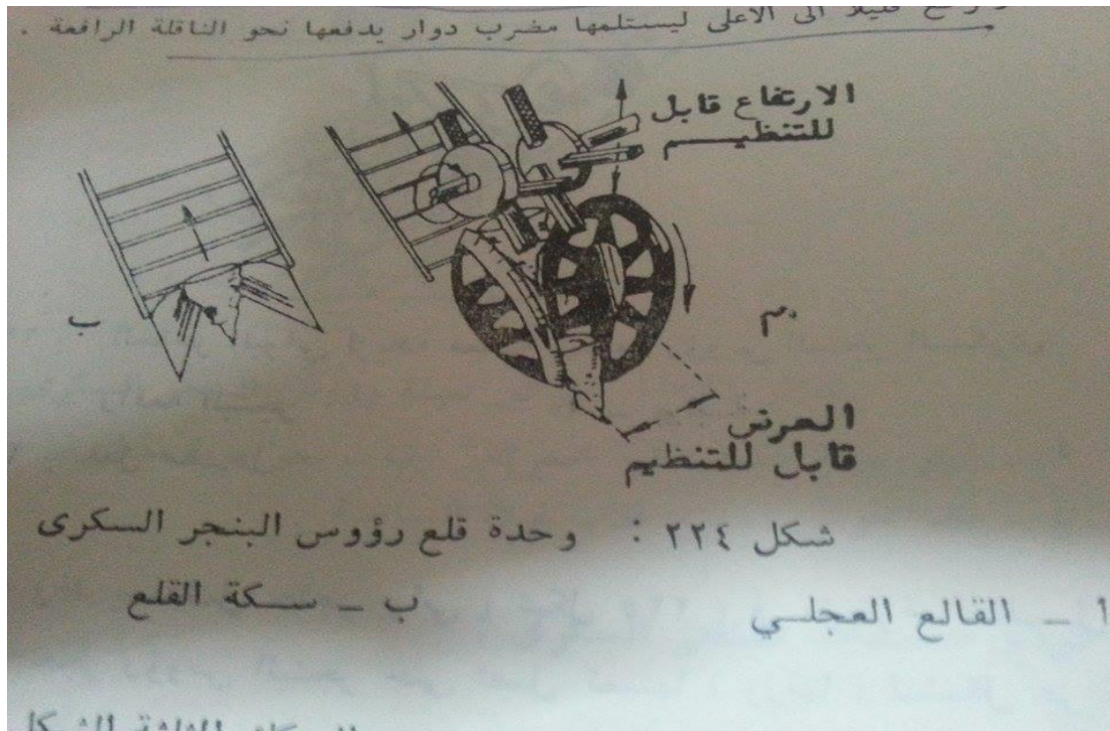 قليلا الى الأعلى ليستلمها مضرب دوار يدفعها نحو الناقلة الرافعة .
الارتفاع قابل
للتنظيم
ب
العرض
قابل للتنظيم
شكل ٢٢٤ : وحدة قلع رؤوس البنجر السكرى
أ - القالع العجلي
ب - سكة القلع